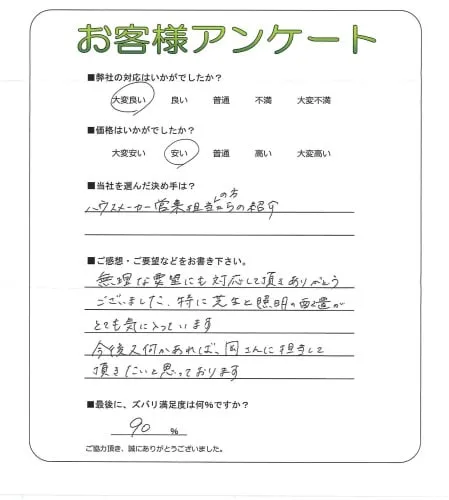 お客様アンケート
■弊社の対応はいかがでしたか？
大変良い 良い 普通 不満 大変不満
■価格はいかがでしたか？
大変安い 安い 普通 高い 大変高い
■当社を選んだ決め手は？
の方
ハウスメーカー営業担当からの紹介
■ご感想・ご要望などをお書き下さい。
無理な要望にも対応して頂きありがとう
ございました。特に芝生と照明の配置が
とても気に入っています
今後又何かあれば、岡さんに担当して
頂きたいと思っております
■最後に、ズバリ満足度は何％ですか？
90 ％
ご協力頂き、誠にありがとうございました。